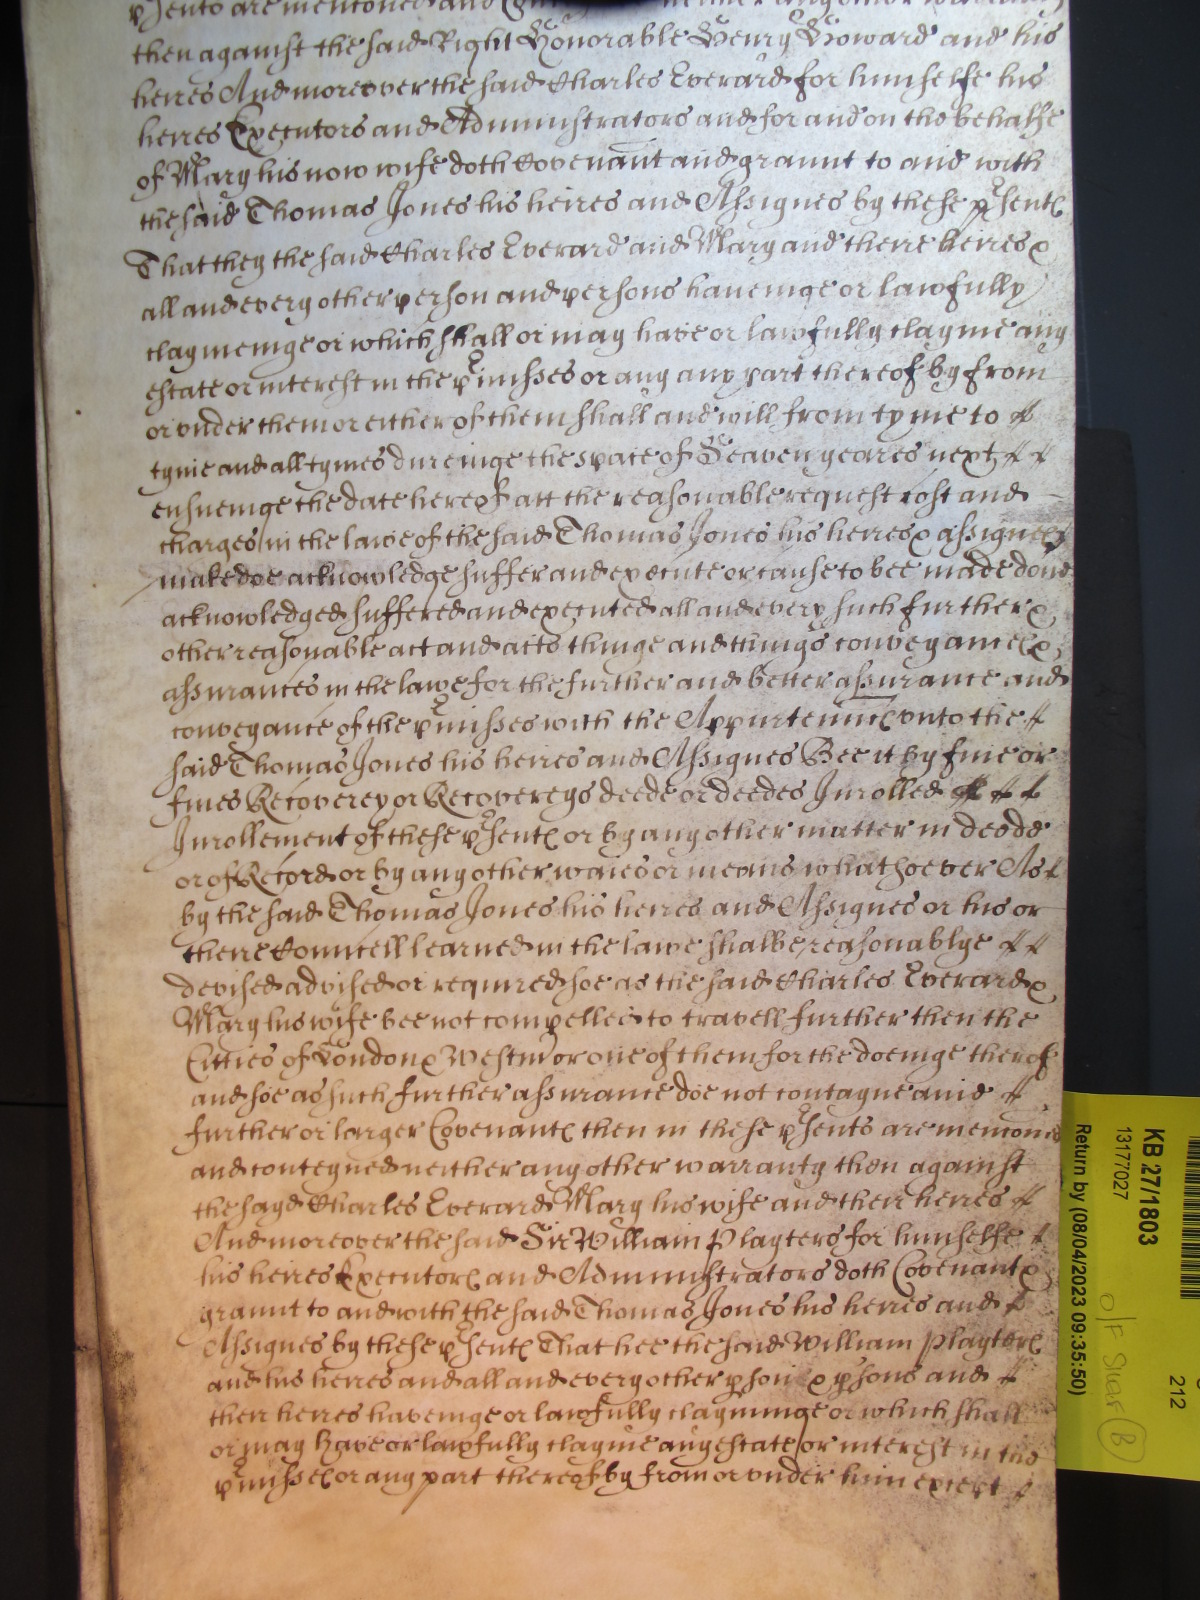 psents are mentioned and neither any other warranty
then against the said Right Honorable Henry Howard and his
heires And moreover the said Charles Everard for himselfe his
heires Executors and Administrators and for and on the behalfe
of Mary his now wife doth Covenant and graunt to and with
the said Thomas Jones his heires and Assignes by these psents
That they the said Charles Everard and Mary and theire heires &
all and every other person and persons haveinge or lawfully
claymeinge or which shall or may have or lawfully clayme any
estate or interest in the pmisses or any any part thereof by from
or vnder them or either of them shall and will from tyme to
tyme and all tymes dureinge the space of Seaven yeares next
ensueinge the date hereof att the reasonable request cost and
charges in the lawe of the said Thomas Jones his heires & assignes
make doe acknowledge suffer and execute or cause to bee made done
acknowledged suffered and executed all and every such further &
other reasonable act and acts thinge and things conveyances &
assurances in the lawe for the further and better assurance and
conveyance of the pmisses with the Appurtennces vnto the
said Thomas Jones his heires and Assignes Bee it by fine or
fines Recoverey or Recovereys deede or deedes Inrolled
Inrollement of these psents or by any other matter in deede
or of Record or by any other waies or means whatsoever As
by the said Thomas Jones his heires and Assignes or his or
theire Councell learned in the lawe shalbe reasonablye
devised advised or required soe as the said Charles Everard &
Mary his wife bee not compelled to travell further then the
Citties of London & Westmr or one of them for the doeinge therof
and soe as such further assurance doe not contayne anie
further or larger Covenants then in these psents are mencioned
and conteyned neither any other warranty then against
the sayd Charles Everard Mary his wife and their heires
And moreover the said Sir William Playters for himselfe
his heires Executors and Administrators doth Covenant &
graunt to and with the said Thomas Jones his heires and
Assignes by these psents That hee the said William Playters
and his heires and all and every other pson & psons and
their heires haveinge or lawfully clayminge or which shall
or may have or lawfully clayme any estate or interest in the
pmisses or any part thereof by from or vnder him except
KB 27/1803
13177027
Return by (08/04/2023 09:35:50)
212